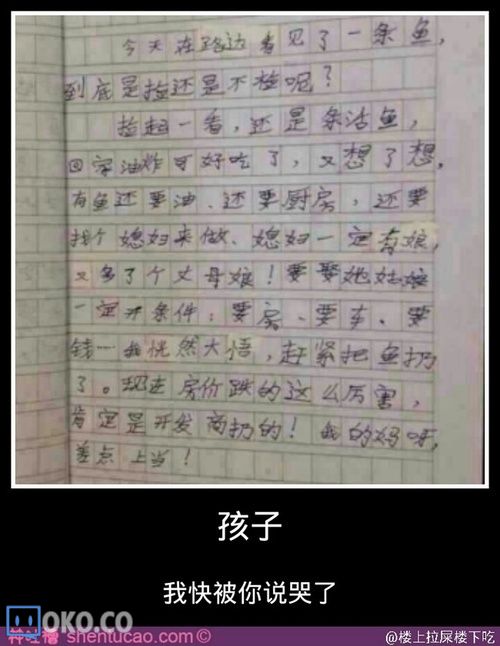 今天在路边看见了一条鱼，
到底是捡还是不捡呢？
捡起一看，还是条活鱼，
回家油炸可好吃了，又想了想，
有鱼还要油、还要厨房，还要
找个媳妇来做、媳妇一定有娘，
又多了个丈母娘！要娶她姑娘
一定开条件：要房、要车、要
钱…我恍然大悟，赶紧把鱼扔
了。现在房价跌的这么厉害，
肯定是开发商扔的！我的妈呀，
差点上当！
孩子
我快被你说哭了
OKO.CO
神吐槽 shentucao.com ©
@楼上拉屎楼下吃